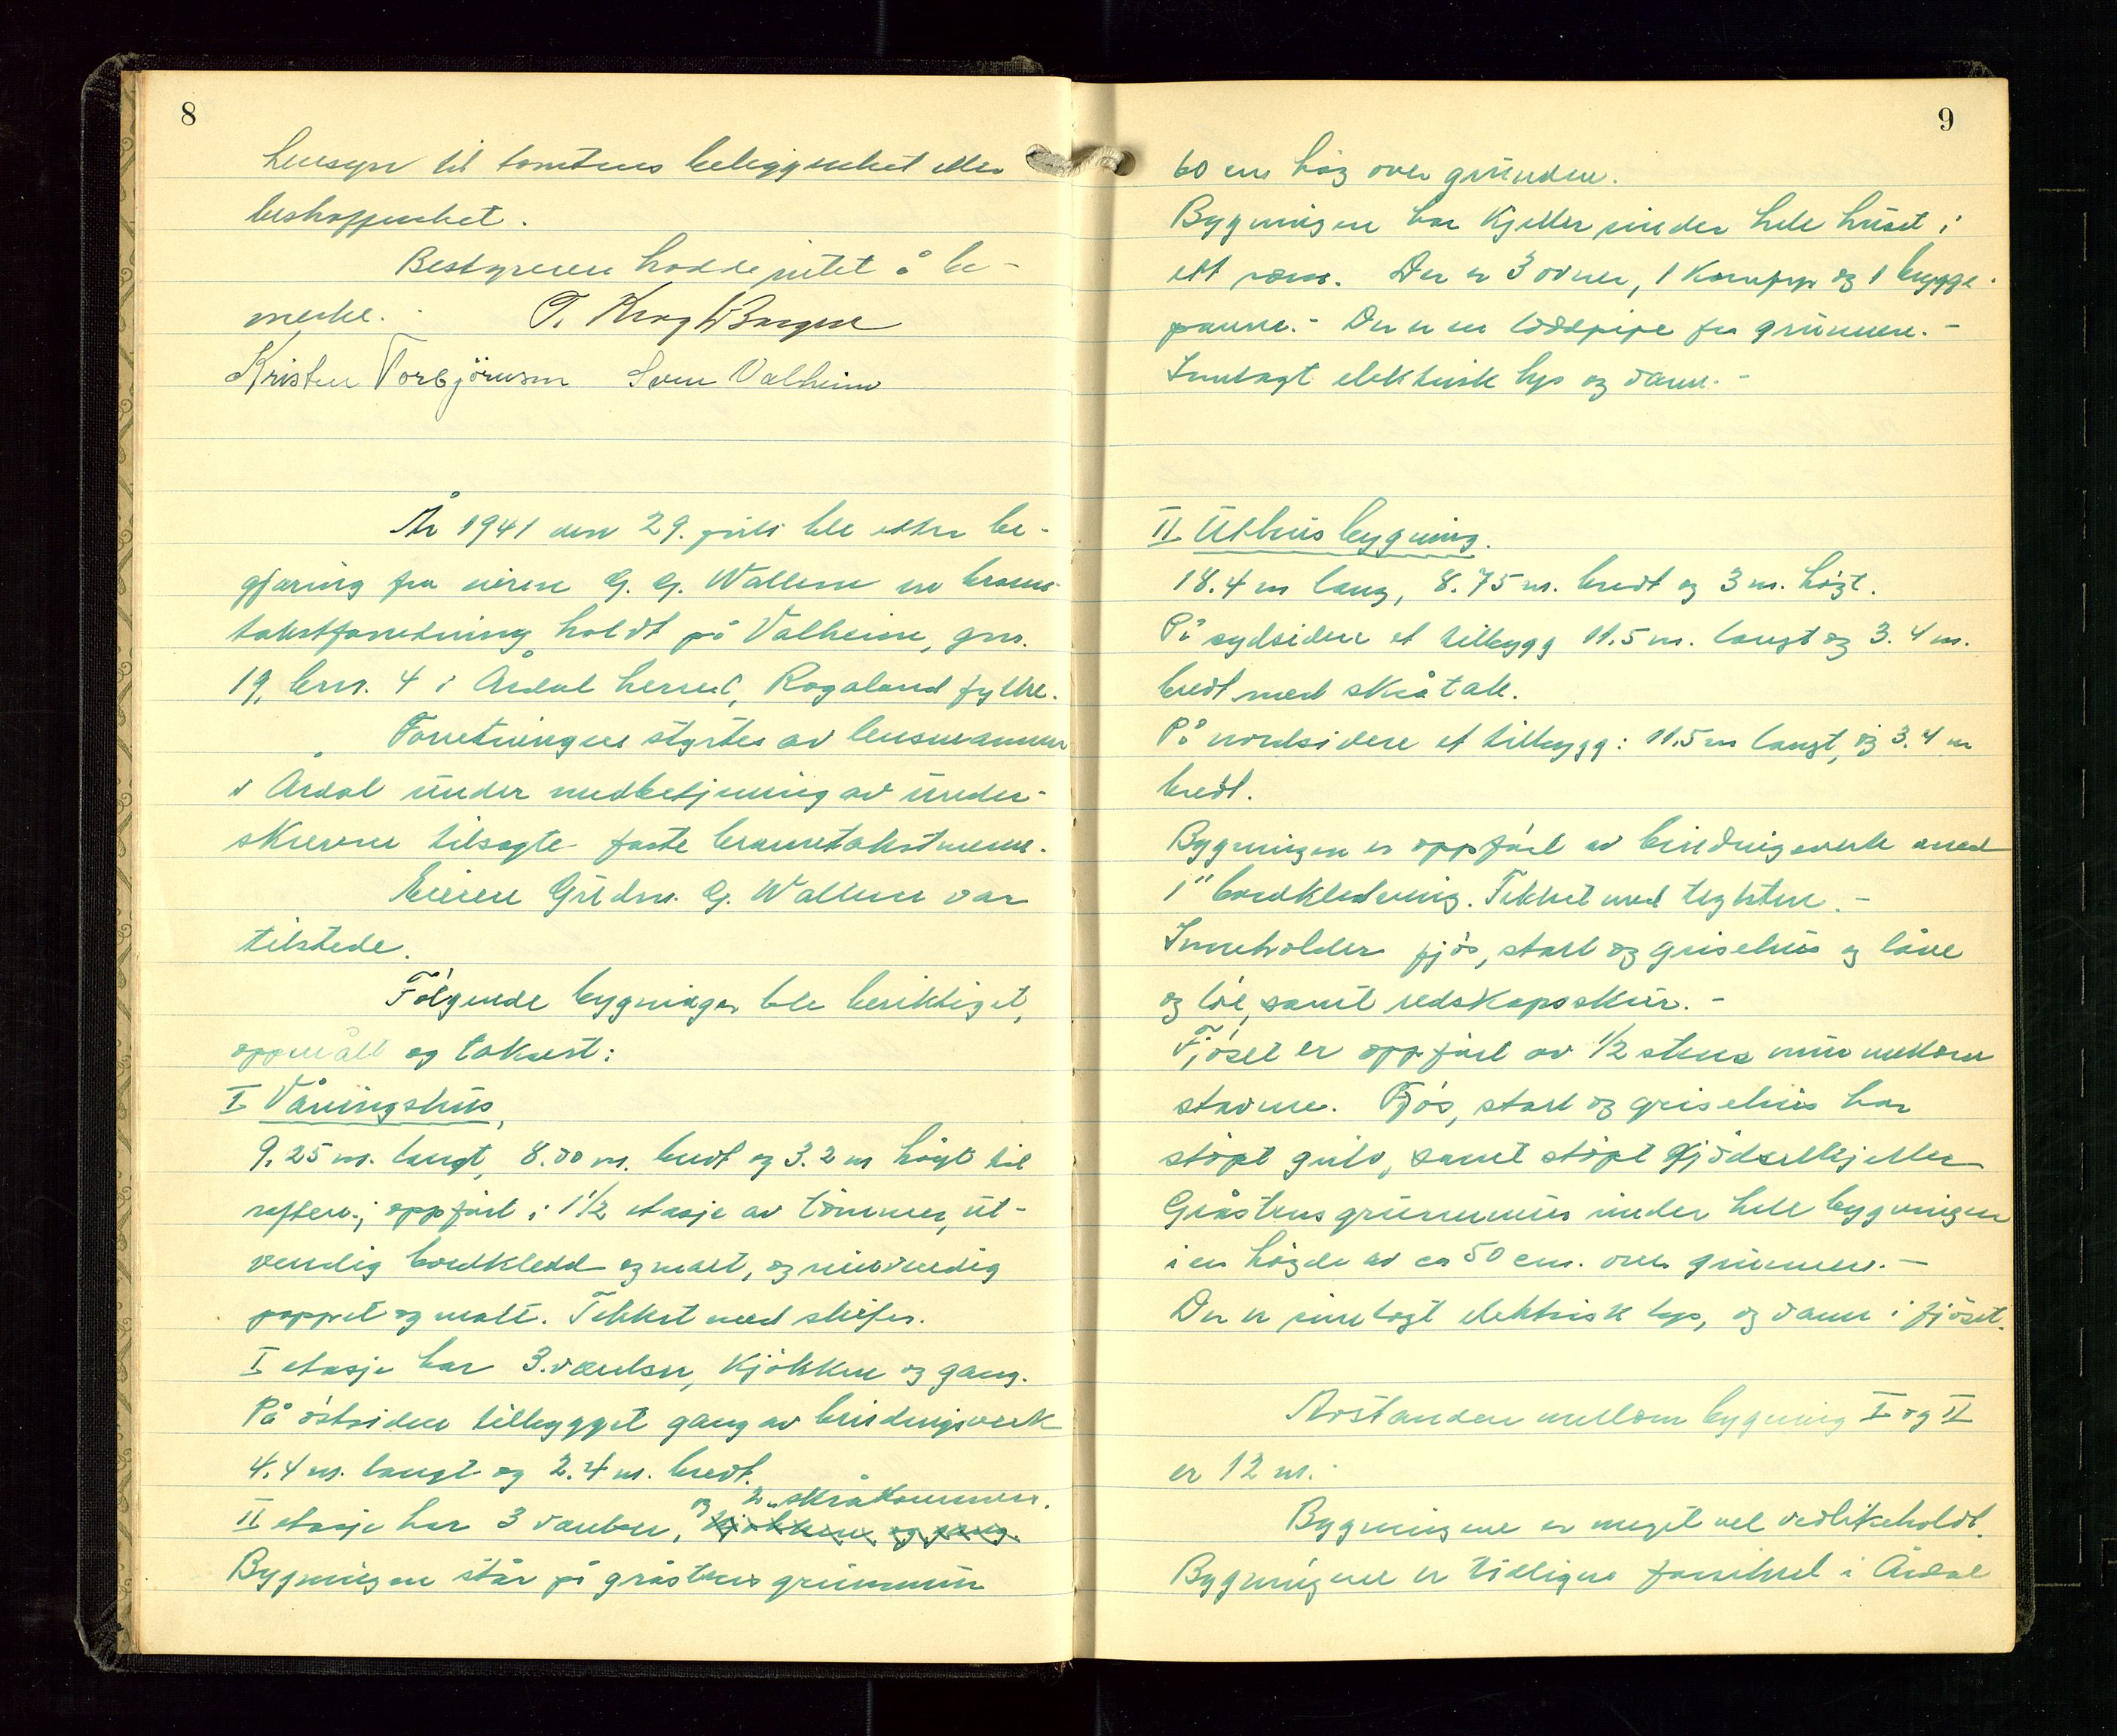 8
hensyn til tomtens beliggenhet eller
beskaffenhet.
Bestyreren hadde intet å be-
merke. T. Krag
Kristen Torbjörnsen Sven Valheim
År 1941 den 29. juli ble etter be-
gjæring fra eieren G. G. Wallem en brann-
takstforretning holdt på Valheim, gnr.
19, brnr. 4 i Årdal herred, Rogaland fylke.
Forretningen styrtes av lensmannen
i Årdal under medbetjening av under-
skrevne tilsagte faste branntakstmenn.
Eieren Gudm. G. Wallem var
tilstede.
Følgende bygninger ble besiktiget,
oppmålt og taksert:
I Våningshus,
9.25 m. langt, 8.00 m. bredt og 3.2 m høgt til
raftene; oppført i 1 1/2 etasje av tömmer, ut-
vendig bordkledd og malt, og innvendig
pappet og malt. Tekket med skifer.
I etasje har 3 værelser, kjökken og gang.
På östsiden tilbygget gang av bindingsverk
4.4 m. langt og 2.4 m. bredt.
og 2 skråkammere.
II etasje har 3 værelser, kjökken og gang.
Bygningen står på gråstens grunnmur
9
60 cm høg over grunden.
Bygningen har kjeller under hele huset i
ett rom. Der er 3 ovner, 1 komfyr og 1 brygge-
panne.- Der er en lødpipe fra grunnen.-
Innlagt elektrisk lys og vann.-
II Uthusbygning.
18.4 m lang, 8.75 m. bredt og 3 m. høgt.
På sydsiden et tilbygg 11.5 m. langt og 3.4 m.
bredt med skråtak.
På nordsiden et tilbygg: 11.5 m langt, og 3.4 m
bredt.
Bygningen er oppført av bindingsverk med
1" bordkledning. Tekket med teglsten.-
Inneholder fjös, stall og grisehus og låve
og löe, samt redskapsskur.-
Fjöset er oppfört av 1/2 stens mur mellom
stavene. Fjös, stall og grisehus har
stöpt gulv, samt stöpt gjödselkjeller
Gråstens grunnmur under hele bygningen
i en högde av ca 50 cm. over grunnen.-
Der er innlagt elektrisk lys, og vann i fjöset.
Avstanden mellom bygning I og II
er 12 m.
Bygningene er meget vel vedlikeholdt.
Bygningene er tidligere forsikret i Årdal